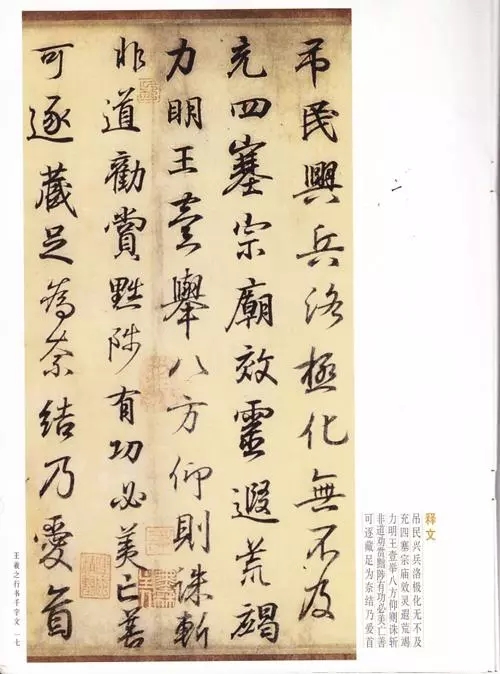 吊民興兵洛極化無不及
充四塞宗廟效靈遐荒竭
力明王壹舉八方仰則誅斬
非道勸賞黜陟有功必美亡善
可逐藏足為奈結乃愛首
释文
吊民兴兵洛极化无不及
充四塞宗庙效灵遐荒竭
力明王壹举八方仰则诛斩
非道劝赏黜陟有功必美亡善
可逐藏足为奈结乃爱首
王羲之行书千字文 一七